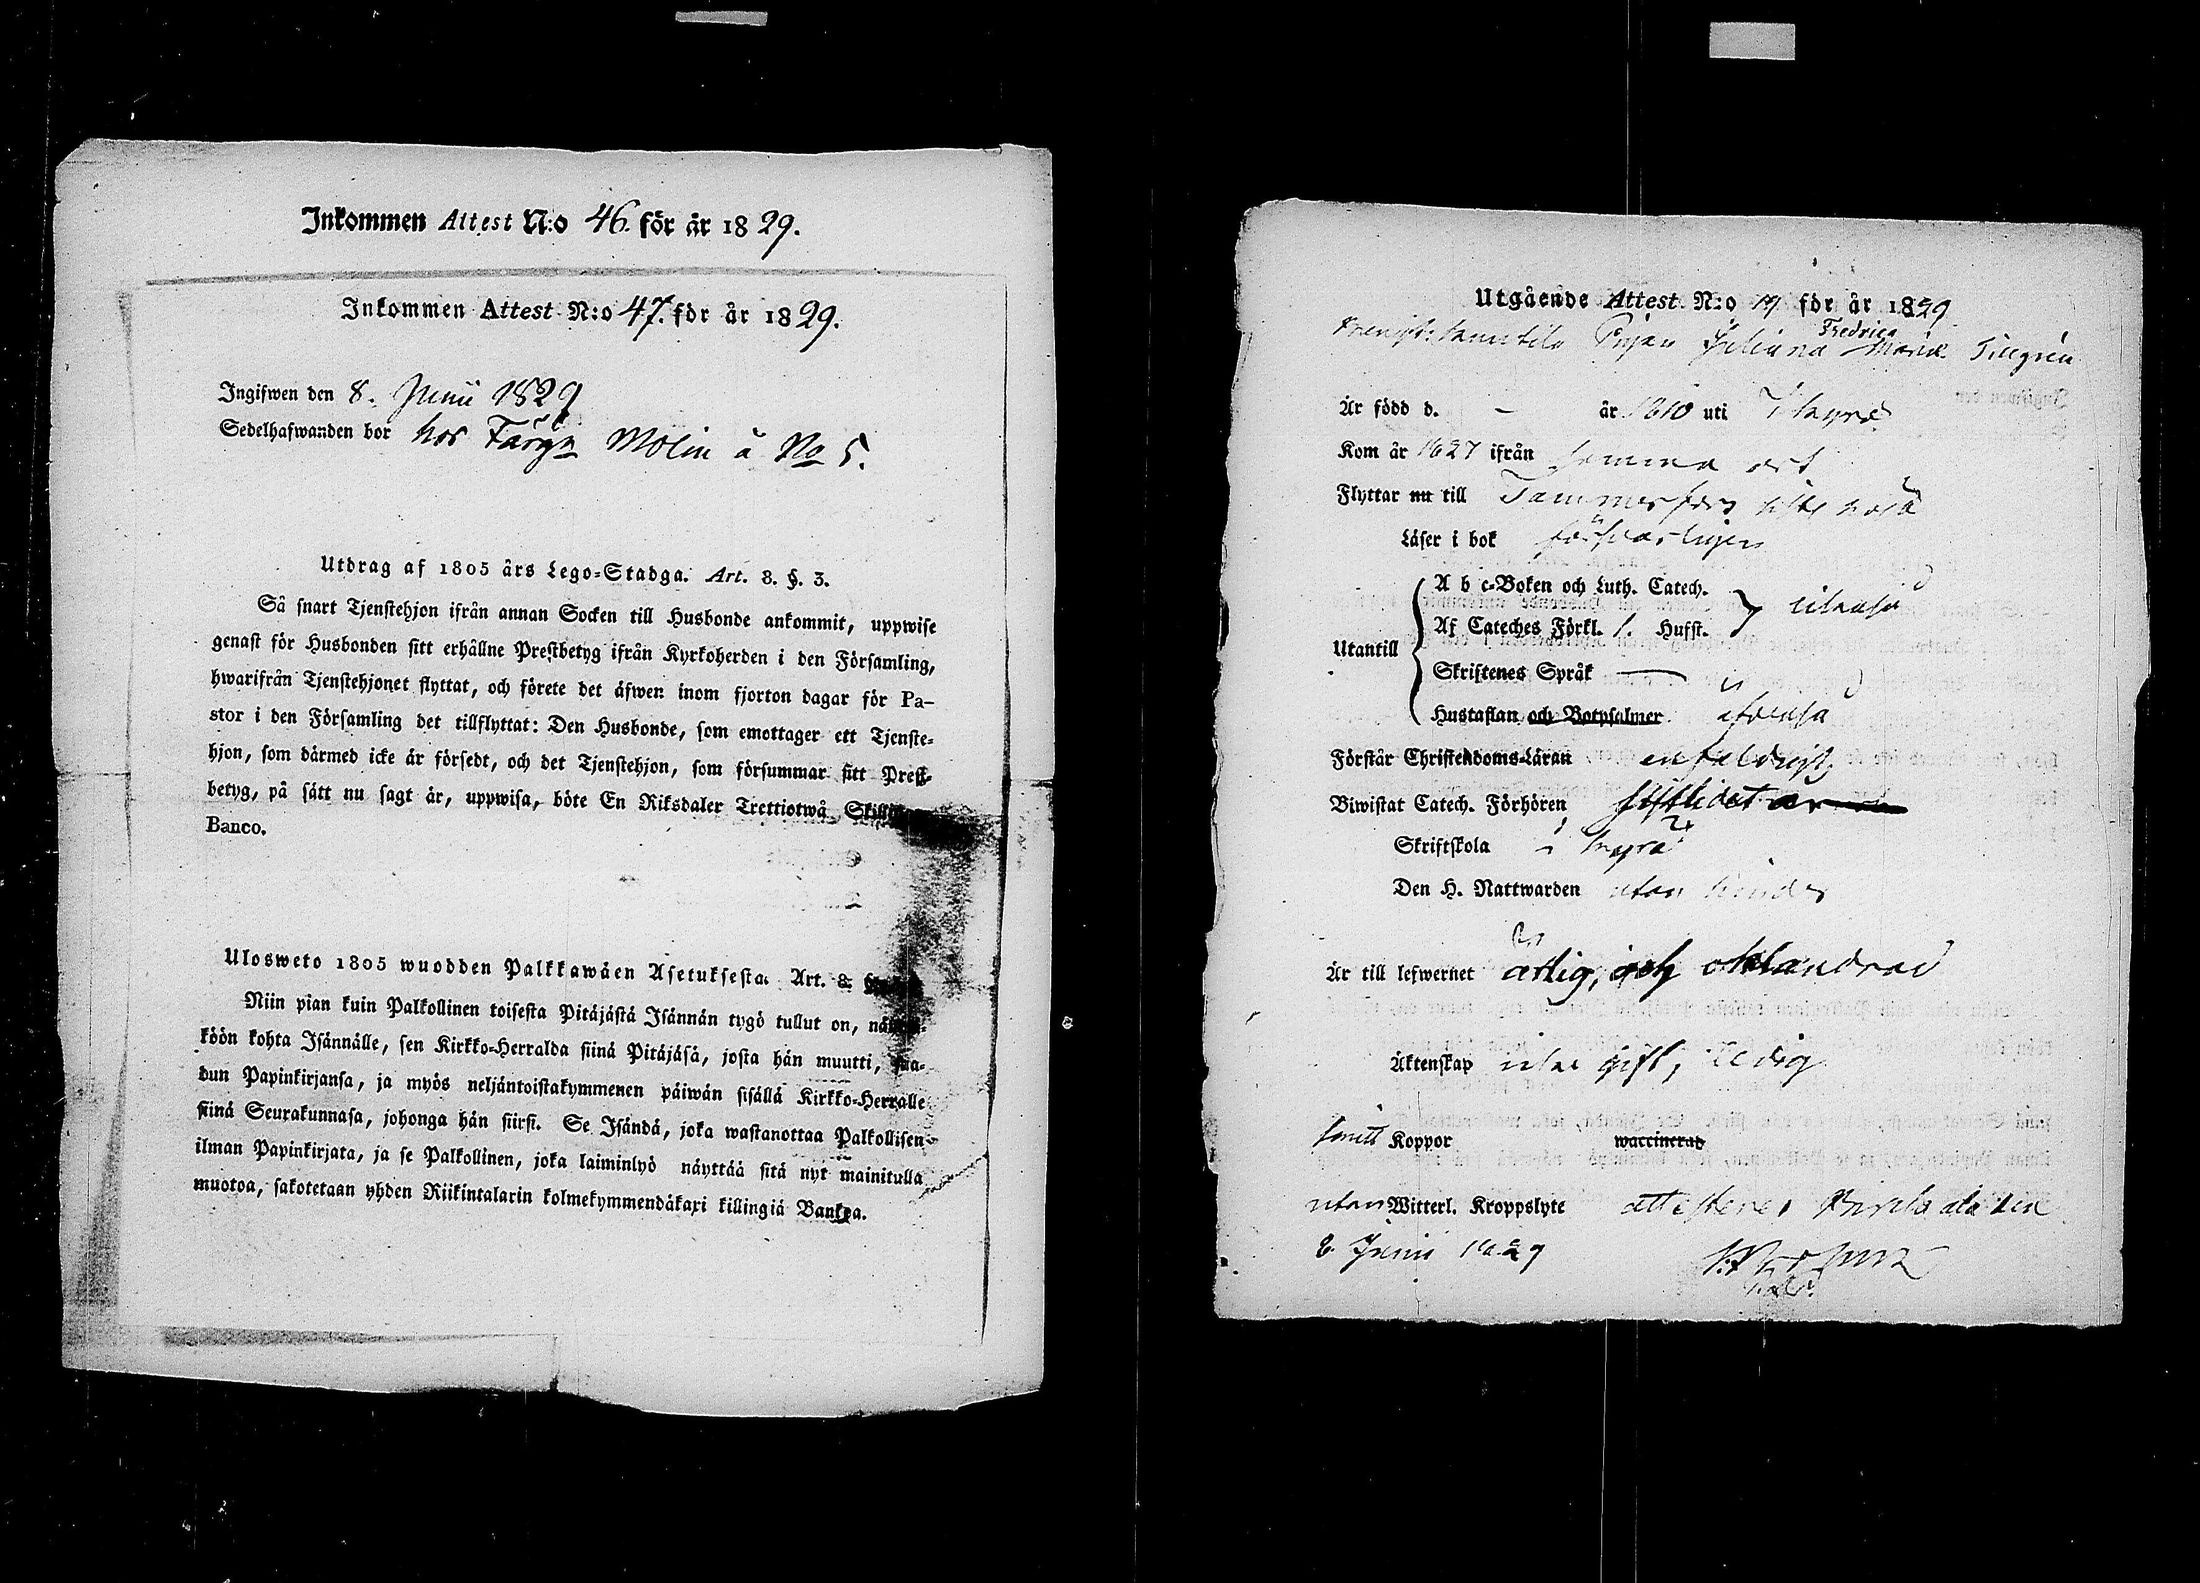 Inkommen Attest N:o 46. för år 1829.
Inkommen Attest N:o 47. för år 1829.
Ingifwen den 8. Junii 1829
Sedelhafwanden bor hos Färg Molin å No 5.
Utdrag af 1805 års Lego-Stadga. Art. 8. §. 3.
Så snart Tjenstehjon ifrån annan Socken till Husbonde ankommit, uppwise
genast för Husbonden sitt erhållne Prestbetyg ifrån Kyrkoherden i den Församling,
hwarifrån Tjenstehjonet flyttat, och förete det äfwen inom fjorton dagar för Pa-
stor i den Församling det tillflyttat: Den Husbonde, som emottager ett Tjenste-
hjon, som därmed icke är försedt, och det Tjenstehjon, som försummar sitt Prest-
betyg, på sätt nu sagt är, uppwisa, böte En Riksdaler Trettiotwå
Banco.
Ulosweto 1805 wuodden Palkkawäen Asetuksesta. Art. 8.
Niin pian kuin Palkollinen toisesta Pitäjästä Isännän tygö tullut on,
köön kohta Isännälle, sen Kirkko-Herralda siinä Pitäjäsä, josta hän muutti, saa-
dun Papinkirjansa, ja myös neljäntoistakymmenen päiwän sisällä Kirkko-Herralle
siinä Seurakunnasa, johonga hän siirsi. Se Isändä, joka wastanottaa Palkollisen
ilman Papinkirjata, ja se Palkollinen, joka laiminlyö näyttää sitä nyt mainitulla
muotoa, sakotetaan yhden Riikintalarin kolmekymmendäkaxi killingiä Bankoa.
Utgående Attest N:o 19 för år 1829
Fredrica
Pigan Juliana Maria
Är född d. - år 1810 uti
Kom år 1827 ifrån samma ort
Flyttar nu till Tammerfors
Läser i bok försvarligen
A b c-Boken och Luth. Catech.
Af Cateches Förkl. Hufst.
Utantill
Skriftenes Språk —
Hustaflan och Botpsalmer
Förstår Christendoms-Läran enfaldigt,
Biwistat Catech. Förhören
Skriftskola i
Den H. Nattwarden utan hinder
Är till lefwernet ärlig, och oklandrad
Äktenskap icke gift, Ledig
haft Koppor waccinerad
utan Witterl. Kroppslyte attesterar den
8 Junii 1829